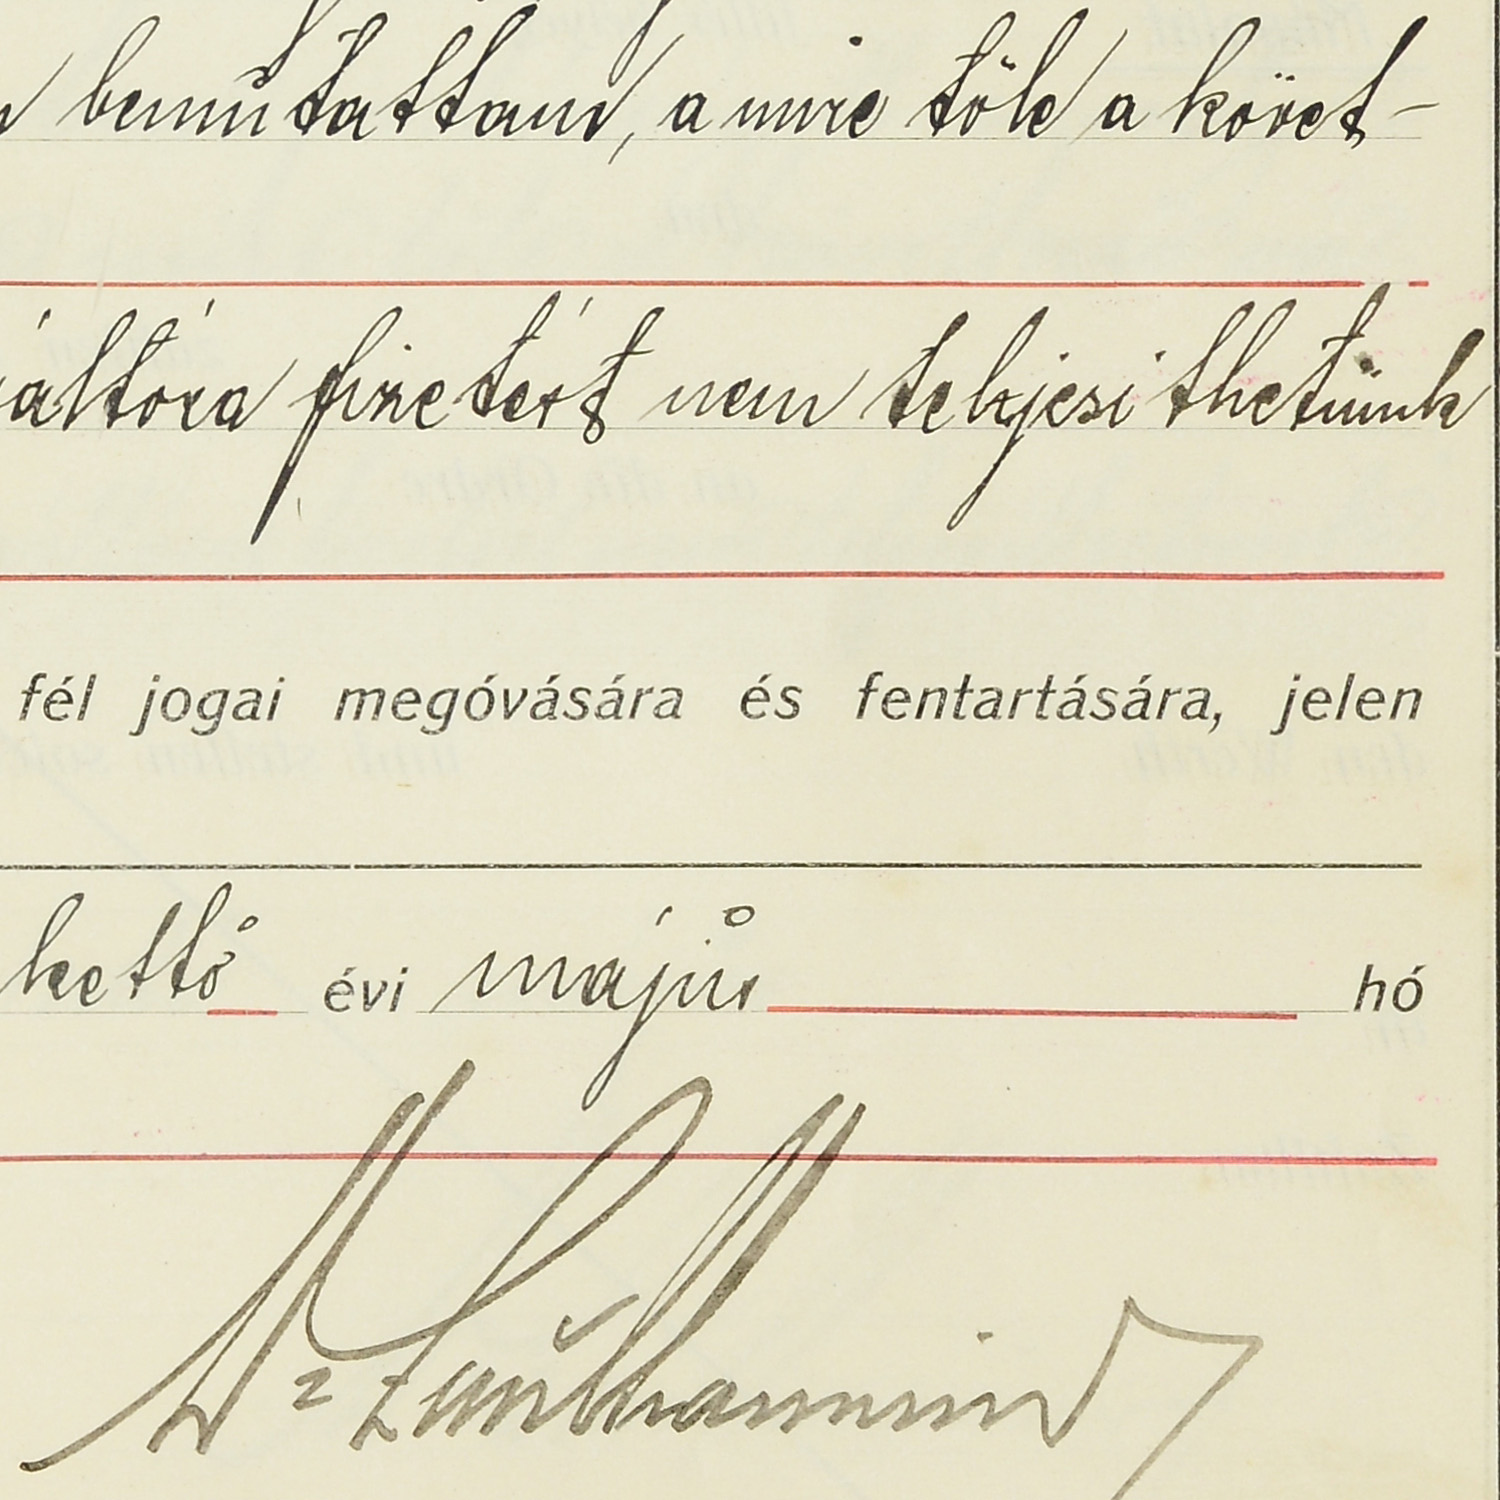 bemutattam, a mire tőle a követ-
váltóra fizetést nem teljesithetünk
fél jogai megóvására és fentartására, jelen
kettő évi május hó
Dr